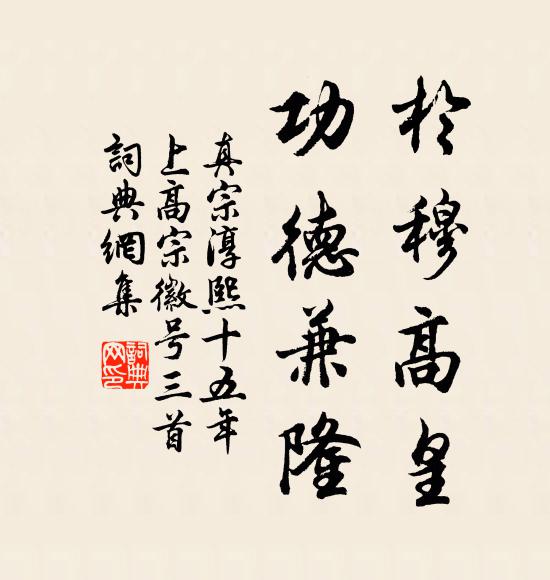 於穆高皇
功德兼隆
真宗淳熙十五年
上高宗徽号三首
詞典網集
詞典网印